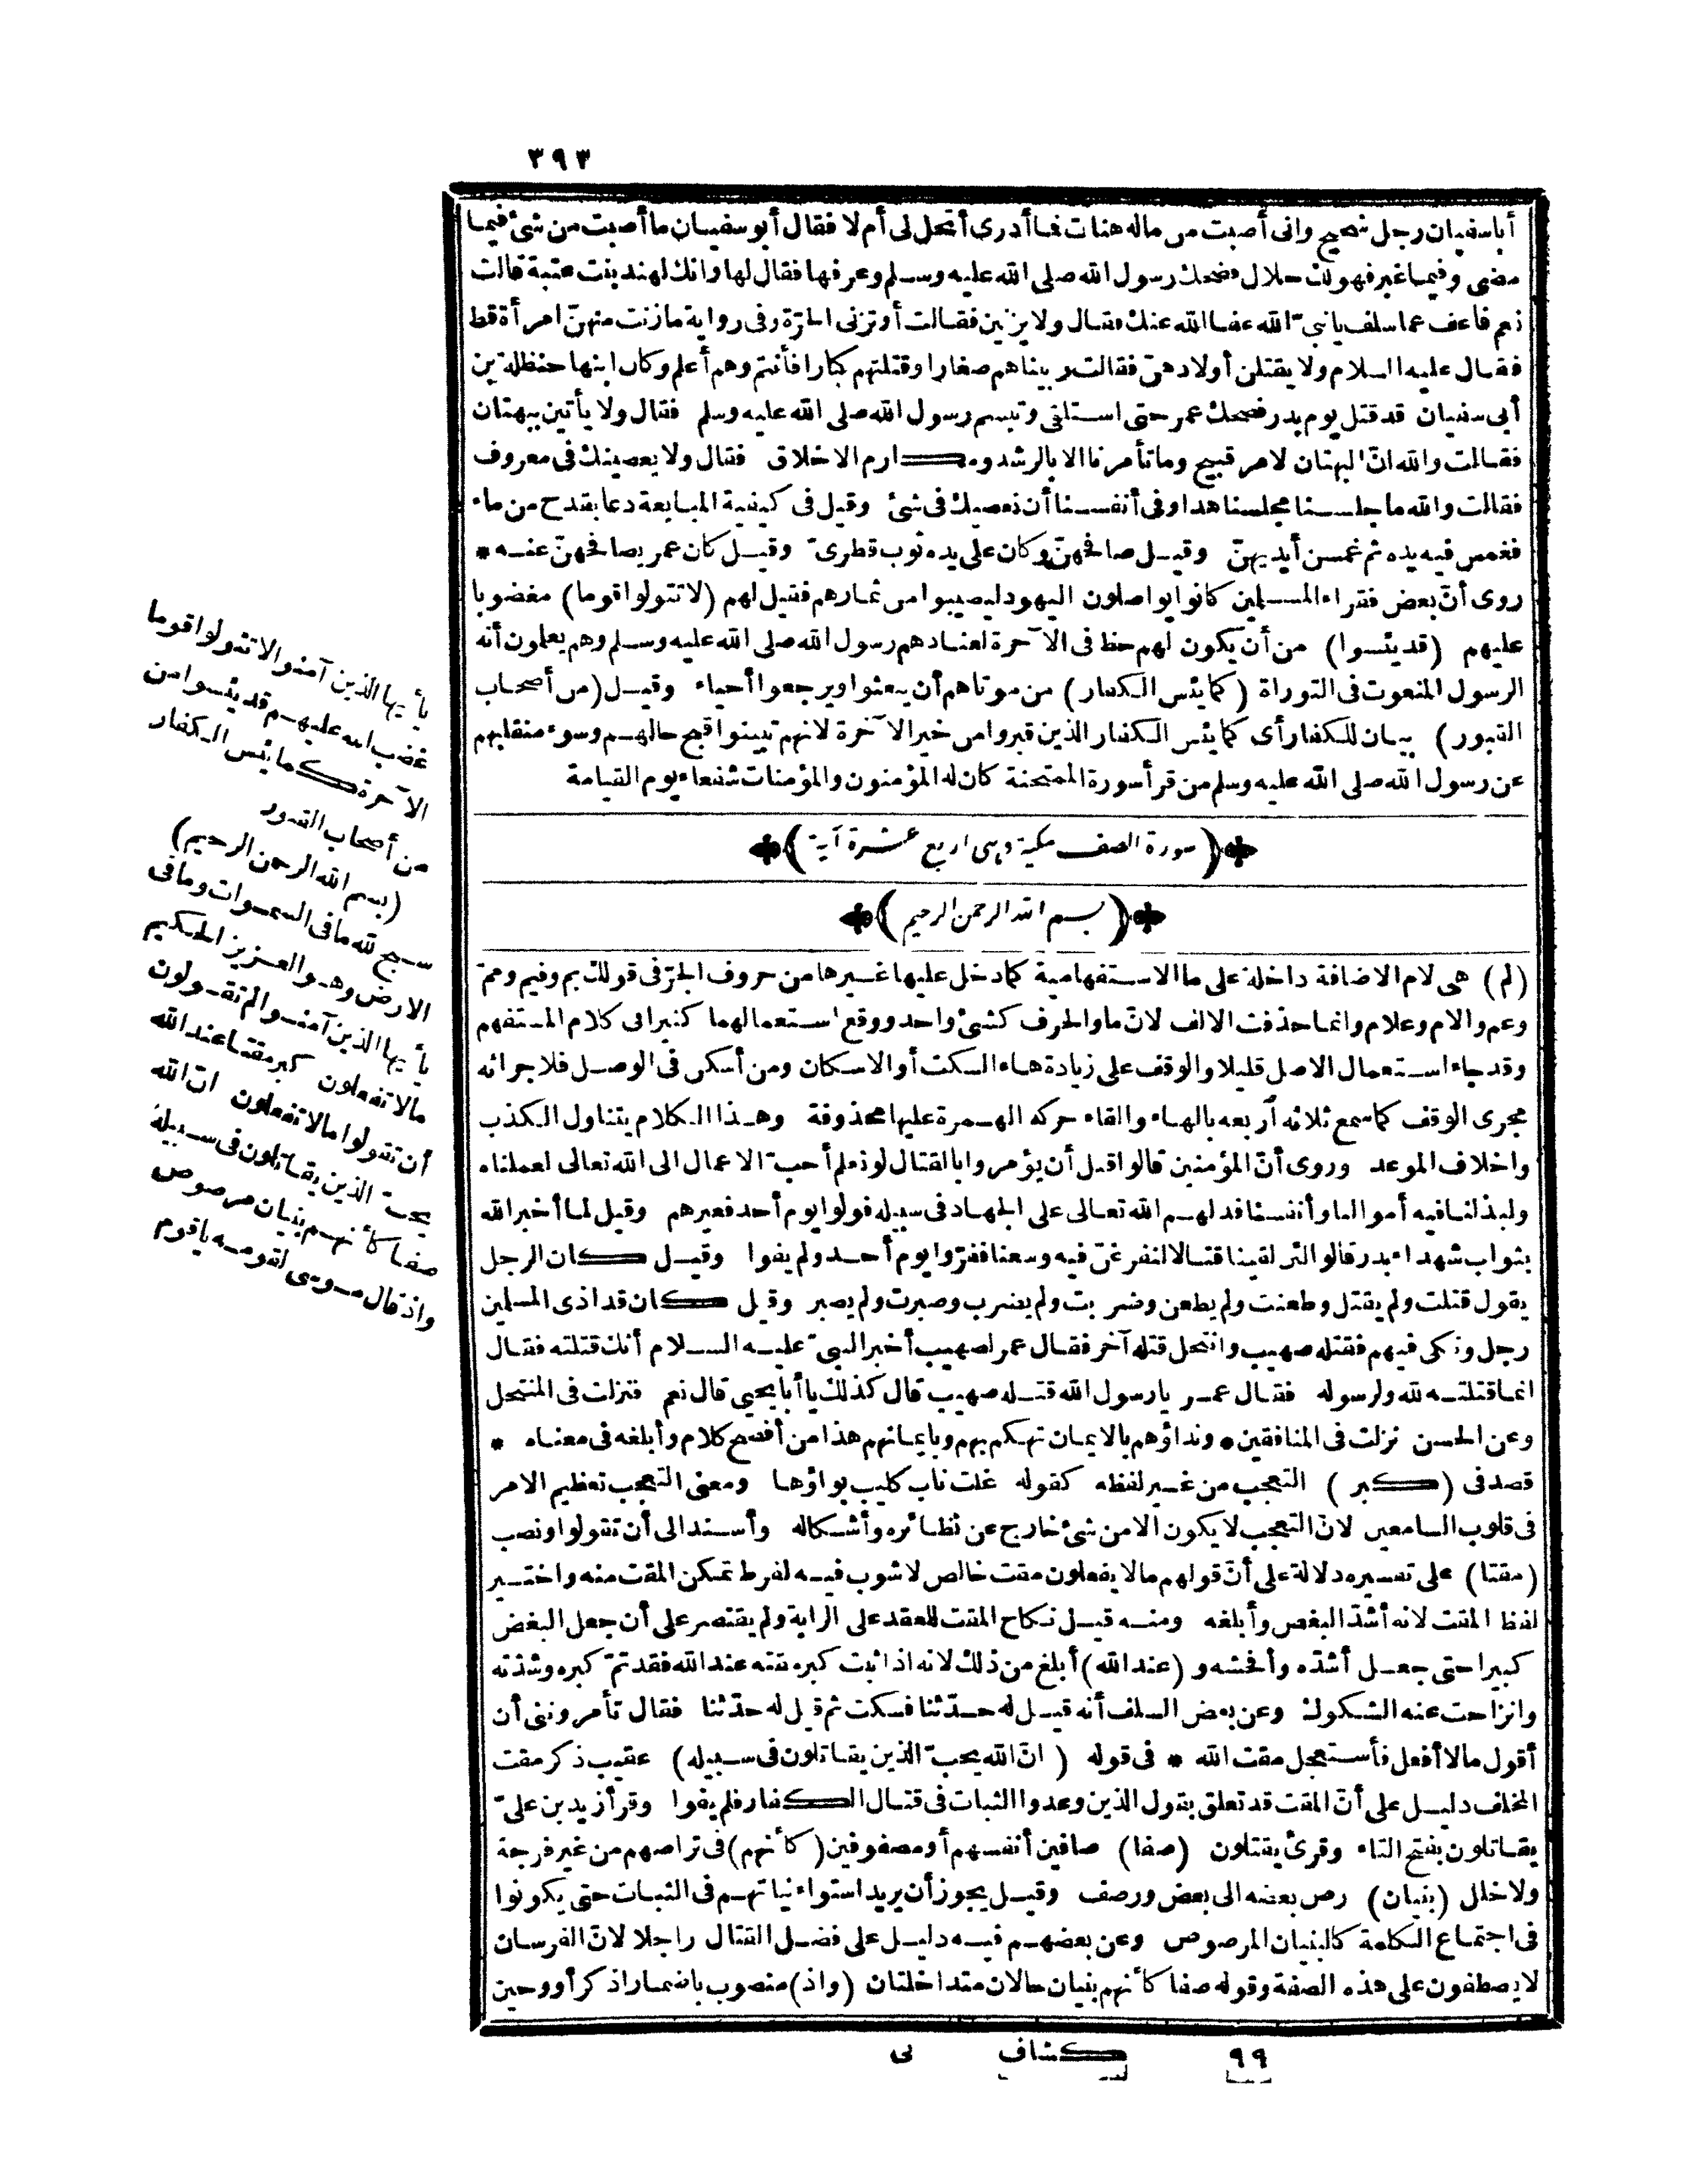 ٣٩٣
أباسفيان رجل شحيح وانى أصبت من ماله هنات فما أدرى أتحل لى أم لا فقال أبو سفيان ما أصبت من شئ فيما
مضى وفيما غبر فهو لك حلال فضحك رسول الله صلى الله عليه وسلم وعرفها فقال لها وانك لهند بنت عتبة قالت
نعم فاعف عما سلف يا نبىّ الله عفا الله عنك فقال ولا يزنين فقالت أو تزنى الحرّة وفى رواية ما زنت منهنّ امرأة قط
فقال عليه السلام ولا يقتلن أولادهنّ فقالت ربيناهم صغارا وقتلتهم كبارا فأنتم وهم أعلم وكان ابنها حنظلة بن
أبى سفيان قد قتل يوم بدر فضحك عمر حتى استلقى وتبسم رسول الله صلى الله عليه وسلم فقال ولا يأتين ببهتان
فقالت والله انّ البهتان لامر قبيح وما تأمرنا الا بالرشد ومكارم الاخلاق فقال ولا يعصينك فى معروف
فقالت والله ما جلسنا مجلسنا هذا وفى أنفسنا أن نعصيك فى شئ وقيل فى كيفية المبايعة دعا بقدح من ماء
فغمس فيه يده ثم غمسن أيديهنّ وقيل صافحهنّ وكان على يده ثوب قطرىّ وقيل كان عمر يصافحهنّ عنه *
روى أنّ بعض فقراء المسلمين كانوا يواصلون اليهود ليصيبوا من ثمارهم فقيل لهم (لا تتولوا قوما) مغضوبا
عليهم (قد يئسوا) من أن يكون لهم حظ فى الآخرة لعنادهم رسول الله صلى الله عليه وسلم وهم يعلمون أنه
الرسول المنعوت فى التوراة (كما يئس الكفار) من موتاهم أن يبعثوا ويرجعوا أحياء وقيل (من أصحاب
القبور) بيان للكفار أى كما يئس الكفار الذين قبروا من خير الآخرة لانهم تبينوا قبح حالهم وسوء منقلبهم
عن رسول الله صلى الله عليه وسلم من قرأ سورة الممتحنة كان له المؤمنون والمؤمنات شفعاء يوم القيامة
(سورة الصف مكية وهى اربع عشرة آية)
(بسم الله الرحمن الرحيم)
(لم) هى لام الاضافة داخلة على ما الاستفهامية كما دخل عليها غيرها من حروف الجرّ فى قولك بم وفيم وممّ
وعم والام وعلام وانما حذفت الالف لانّ ما والحرف كشئ واحد ووقع استعمالهما كثيرا فى كلام المستفهم
وقد جاء استعمال الاصل قليلا والوقف على زيادة هاء السكت أو الاسكان ومن أسكن فى الوصل فلاجرائه
مجرى الوقف كما سمع ثلاثه أربعه بالهاء والقاء حركة الهمزة عليها محذوفة وهذا الكلام يتناول الكذب
واخلاف الموعد وروى أنّ المؤمنين قالوا قبل أن يؤمروا بالقتال لو نعلم أحبّ الاعمال الى الله تعالى لعملناه
ولبذلنا فيه أموالنا وأنفسنا فدلهم الله تعالى على الجهاد فى سبيله فولوا يوم أحد فعيرهم وقيل لما أخبر الله
بثواب شهداء بدر قالوا لئن لقينا قتالا لنفرغنّ فيه وسعنا ففرّوا يوم أحد ولم يفوا وقيل كان الرجل
يقول قتلت ولم يقتل وطعنت ولم يطعن وضربت ولم يضرب وصبرت ولم يصبر وقيل كان قد اذى المسلمين
رجل ونكى فيهم فقتله صهيب وانتحل قتله آخر فقال عمر لصهيب أخبر النبىّ عليه السلام أنك قتلته فقال
انما قتلته لله ولرسوله فقال عمر يا رسول الله قتله صهيب قال كذلك يا أبا يحيى قال نعم فنزلت فى المنتحل
وعن الحسن نزلت فى المنافقين * ونداؤهم بالايمان تهكم بهم وبايمانهم هذا من أفصح كلام وأبلغه فى معناه *
قصد فى (كبر) التعجب من غير لفظه كقوله غلت ناب كليب بواؤها ومعنى التعجب تعظيم الامر
فى قلوب السامعين لانّ التعجب لا يكون الا من شئ خارج عن نظائره وأشكاله وأسند الى أن تقولوا ونصب
(مقتا) على تفسيره دلالة على أنّ قولهم ما لا يفعلون مقت خالص لا شوب فيه لفرط تمكن المقت منه واختير
لفظ المقت لانه أشدّ البغض وأبلغه ومنه قيل نكاح المقت للعقد على الرابة ولم يقتصر على أن جعل البغض
كبيرا حتى جعل أشدّه وأفحشه و (عند الله) أبلغ من ذلك لانه اذا ثبت كبر مقته عند الله فقد تمّ كبره وشدّته
وانزاحت عنه الشكوك وعن بعض السلف أنه قيل له حدّثنا فسكت ثم قيل له حدّثنا فقال تأمروننى أن
أقول ما لا أفعل فأستعجل مقت الله * فى قوله (انّ الله يحبّ الذين يقاتلون فى سبيله) عقيب ذكر مقت
المخلف دليل على أنّ المقت قد تعلق بقول الذين وعدوا الثبات فى قتال الكفار فلم يفوا وقرأ زيد بن علىّ
يقاتلون بفتح التاء وقرئ يقتلون (صفا) صافين أنفسهم أو مصفوفين (كأنهم) فى تراصهم من غير فرجة
ولا خلل (بنيان) رص بعضه الى بعض ورصف وقيل يجوز أن يريد استواء نياتهم فى الثبات حتى يكونوا
فى اجتماع الكلمة كالبنيان المرصوص وعن بعضهم فيه دليل على فضل القتال راجلا لانّ الفرسان
لا يصطفون على هذه الصفة وقوله صفا كأنهم بنيان حالان متداخلتان (واذ) منصوب باضمار اذكر أو وحين
يأيها الذين آمنوا لا تتولوا قوما
غضب الله عليهم قد يئسوا من
الآخرة كما يئس الكفار
من أصحاب القبور
(بسم الله الرحمن الرحيم)
سبح لله ما فى السموات وما فى
الارض وهو العزيز الحكيم
يأيها الذين آمنوا لم تقولون
ما لا تفعلون كبر مقتا عند الله
أن تقولوا ما لا تفعلون انّ الله
يحبّ الذين يقاتلون فى سبيله
صفا كأنهم بنيان مرصوص
واذ قال موسى لقومه يا قوم
٩٩ كشاف نى